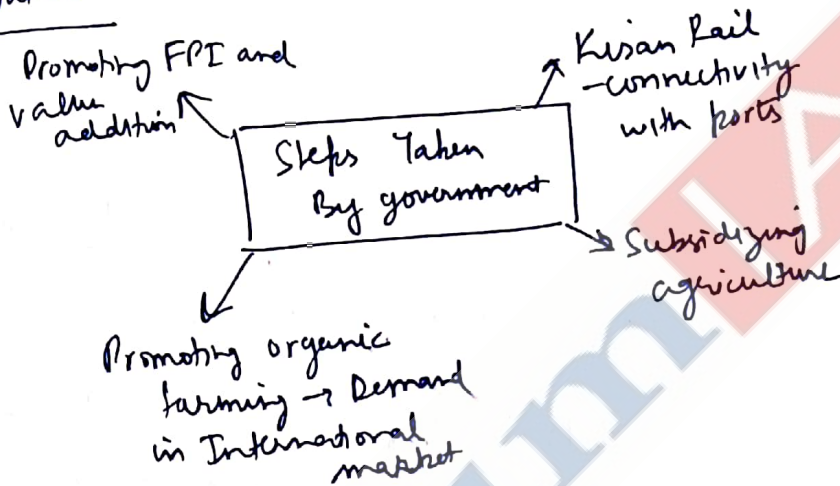 Promoting FPI and
value
addition
Kisan Rail
-connectivity
with ports
Steps Taken
By government
Subsidizing
agriculture
Promoting organic
farming → Demand
in International
market